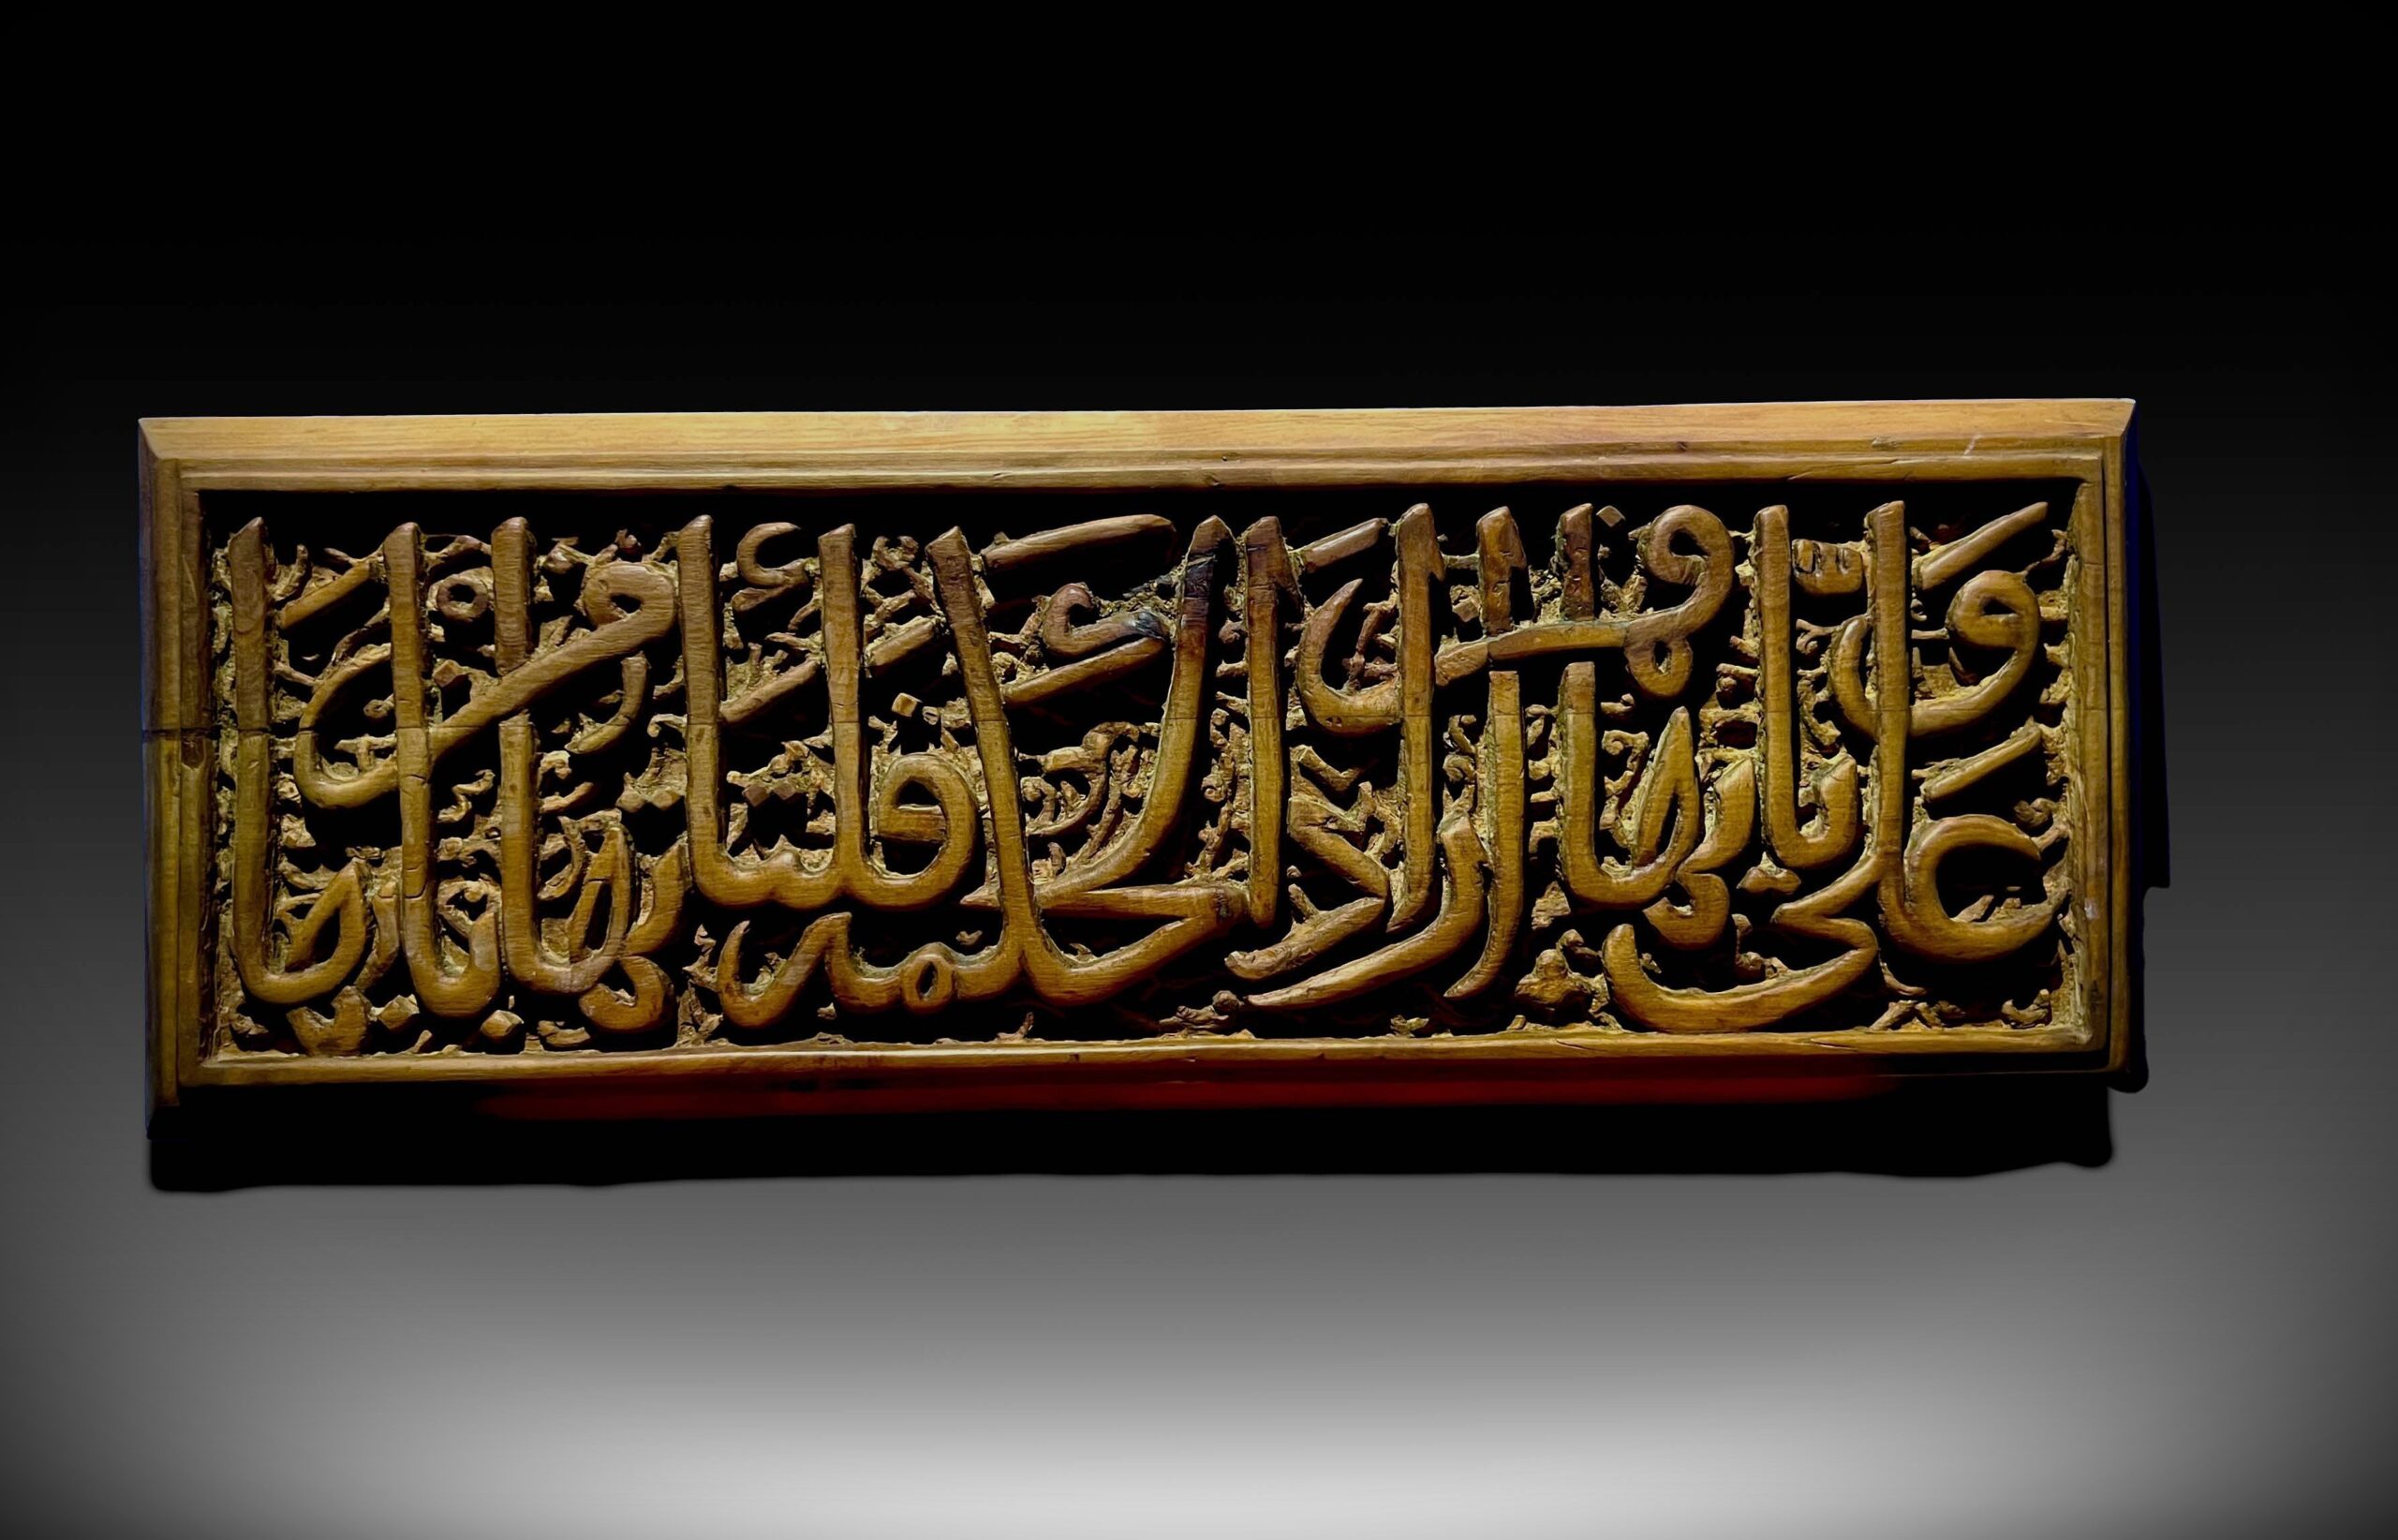 وعلي بابها فمن اراد الحكمة فليأتها من بابها